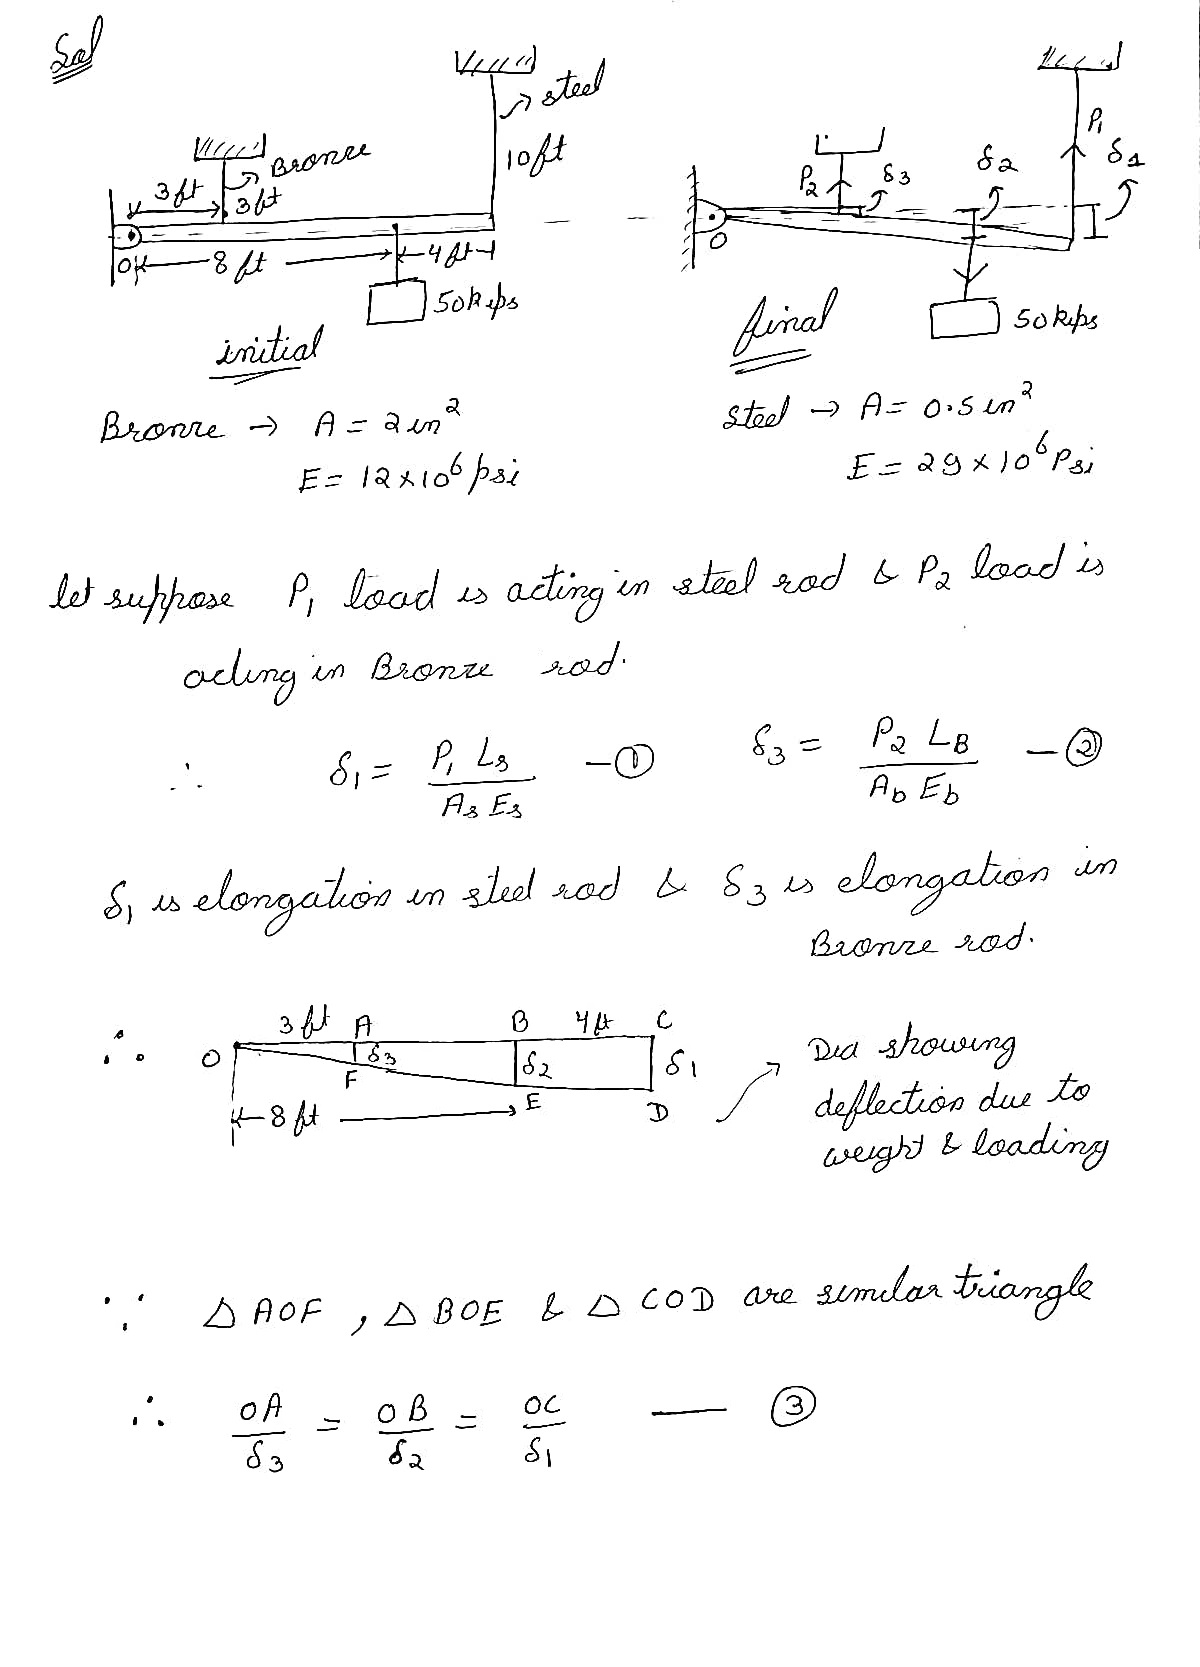 Sol
steel
Bronze
10ft
3ft
3ft
O
8 ft
4ft
50kips
initial
P1
δ1
δ2
δ3
P2
O
50kips
final
Bronze → A = 2in²
E = 12×10⁶ psi
steel → A = 0.5in²
E = 29×10⁶ Psi
let suppose P₁ load is acting in steel rod & P₂ load is
acting in Bronze rod.
∴ δ₁ = P₁ Ls / As Es —① δ₃ = P₂ LB / Ab Eb —②
δ₁ is elongation in steel rod & δ₃ is elongation in
Bronze rod.
∴ O 3ft A B 4ft C
δ3 δ2 δ1
F E D
8 ft
Dia showing
deflection due to
weight & loading
∵ △AOF, △BOE & △COD are similar triangle
∴ OA/δ₃ = OB/δ₂ = OC/δ₁ — ③